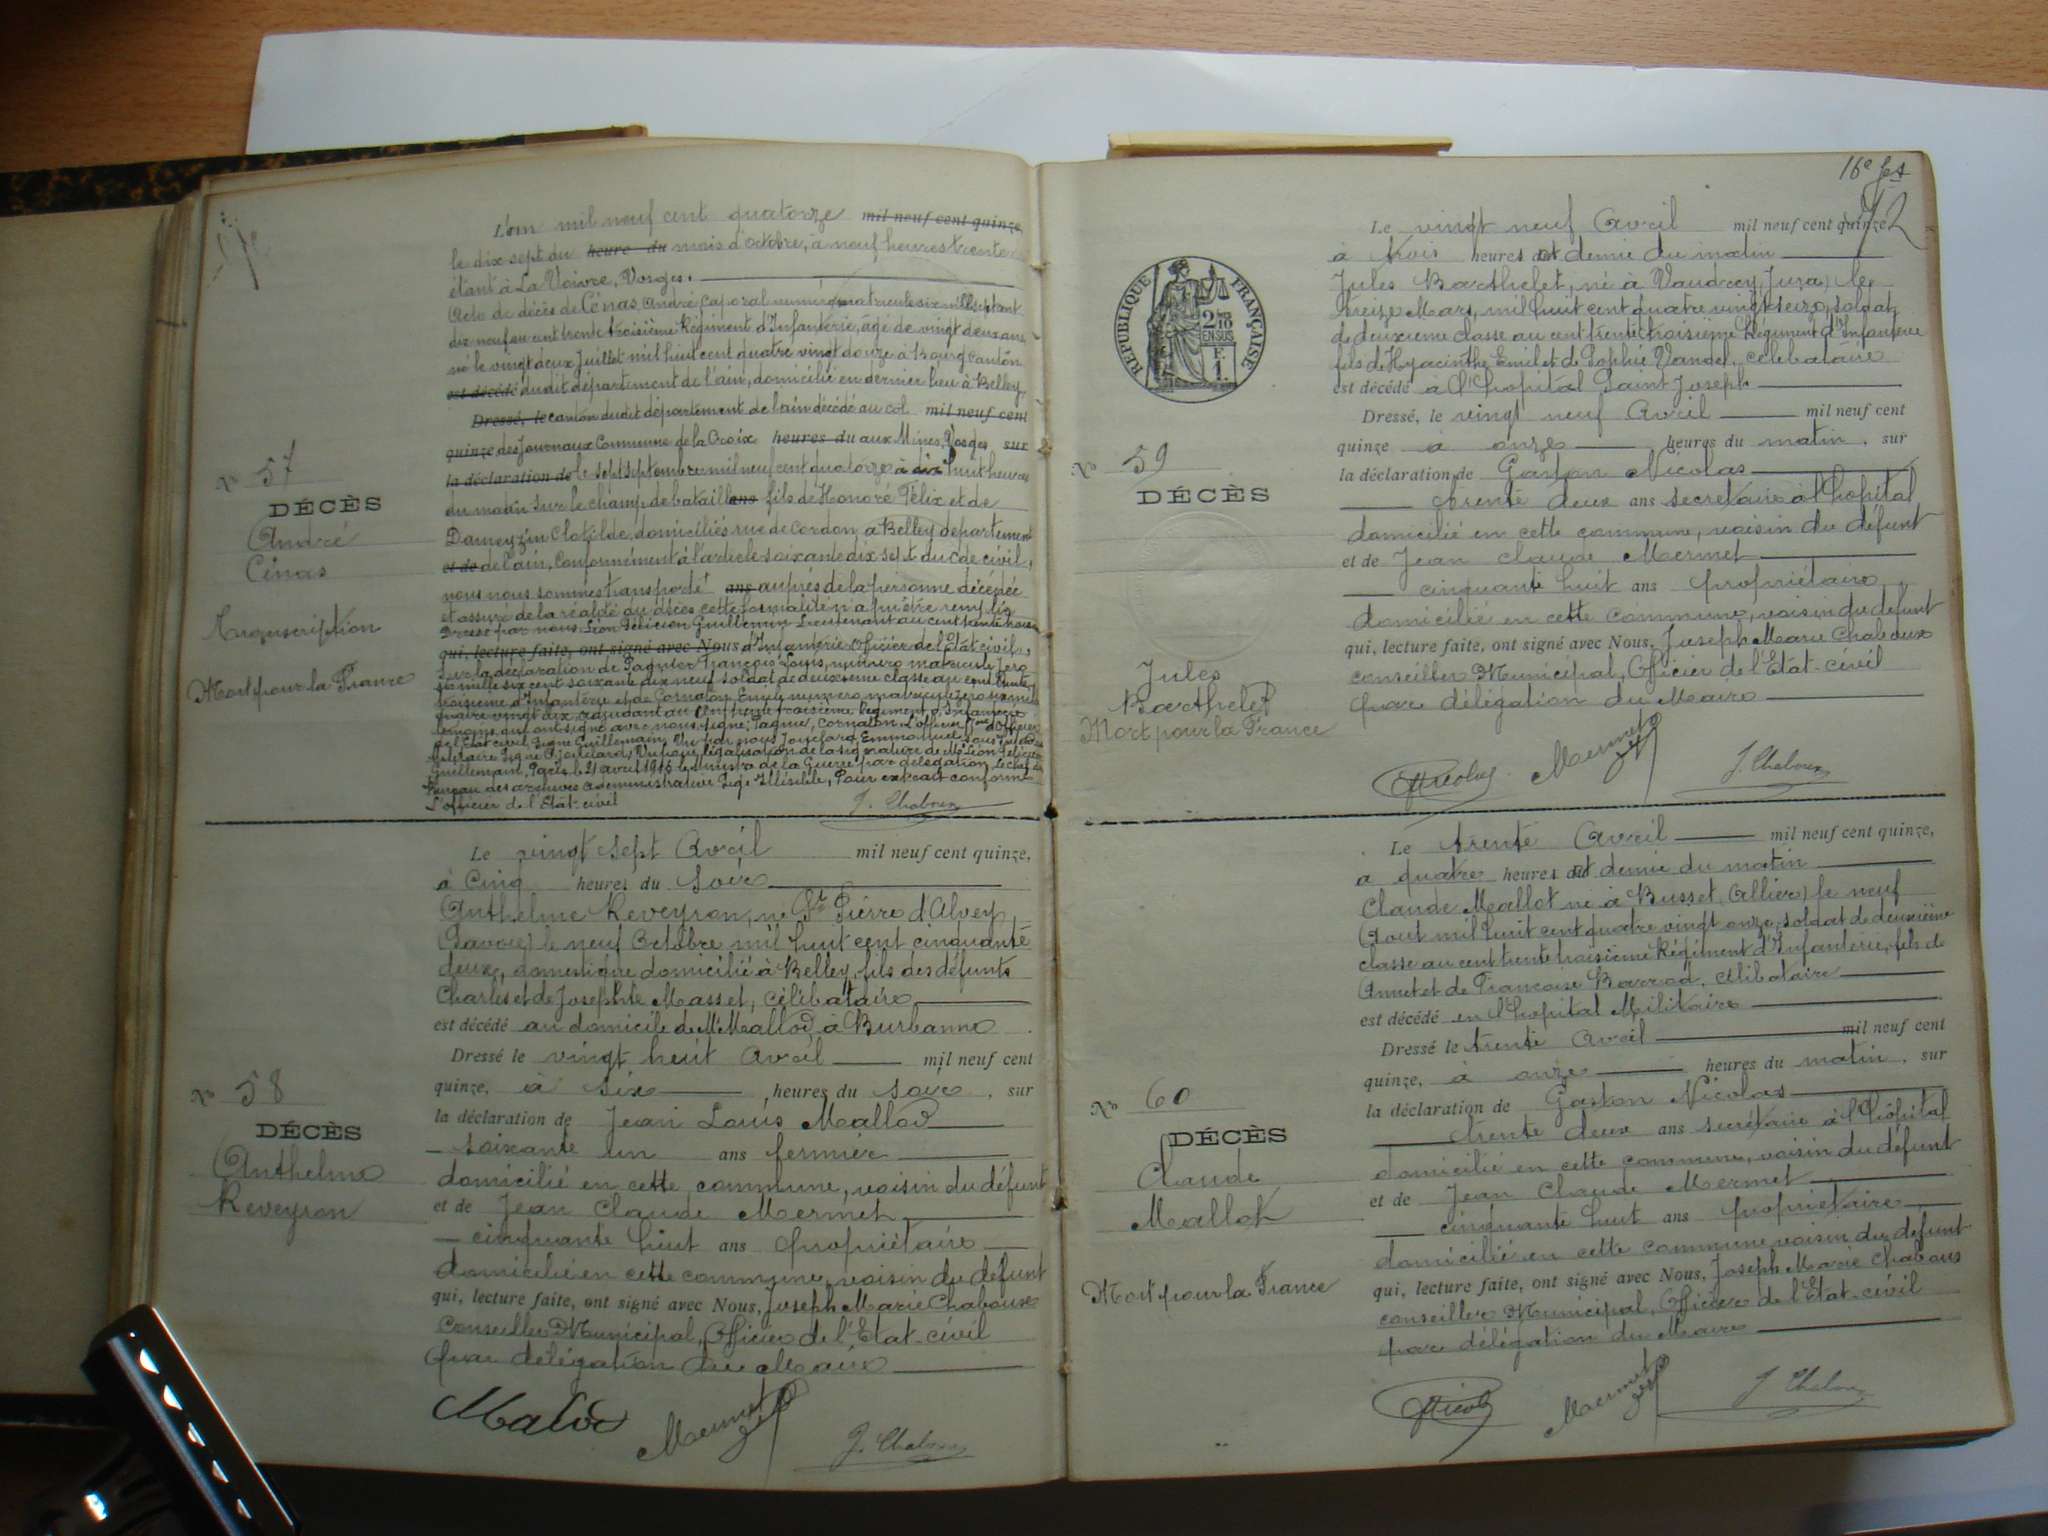 L'an mil neuf cent quatorze mil neuf cent quinze,
le dix sept du heure du mois d'octobre, à neuf heures trente
étant à La Voivre, Vosges.
Acte de décès de Cénas André caporal numéro matricule six mille septant
dix neuf au cent trente troisième Régiment d'Infanterie, âgé de vingt deux ans
né le vingt deux Juillet mil huit cent quatre vingt douze à Bourg canton
est décédé dudit département de l'ain, domicilié en dernier lieu à Belley
Dressé, le canton dudit département de l'ain décédé au col mil neuf cent
quinze des Journaux Commune de la Croix heures du aux Mines, Vosges sur
la déclaration de le sept septembre mil neuf cent quatorze à dix huit heures
du matin sur le champ de bataill ans fils de Honoré Félix et de
Dameyzin Clotilde, domiciliés rue de Cordon, à Belley département
et de de l'ain, Conformément à l'article soixante dix sept du code civil,
nous nous sommes transporté ans auprès de la personne décédée
et assuré de la réalité du décès cette formalité n'a pu être remplie
Dressé par nous Léon Félicien Guillemin Lieutenant au cent trente trois
qui, lecture faite, ont signé avec Nous d'Infanterie Officier de l'Etat civil,
Sur la déclaration de Pagnier François Louis, numéro matricule zero
six mille six cent soixante dix neuf soldat de deuxième classe au cent trente
troisième d'Infanterie et de Cornaton Emile numéro matricule zero six mil
quatre vingt dix, adjudant au cent trente troisième Régiment d'Infanterie
témoins qui ont signé avec nous signé Pagnie, Cornaton L'officier
de l'Etat civil signé Guillemain Vu par nous Jouclard Emmanuel Sous Intend
Militaire Signé Jouclard, Vu pour légalisation de la signature de Mr Léon Félicien
Guillemant, Paris le 21 avril 1915 le Ministre de la Guerre par délégation le chef du
bureau des archives administrative Sign Illisible, Pour extrait conforme
L'officier de l'Etat-civil
J. Chaboux
No 57
DÉCÈS
André
Cénas
Transcription
Mort pour la France
Le vingt sept Avril mil neuf cent quinze,
à Cinq heures du Soir
Anthelme Reveyron, né St Pierre d'Alvey
(Savoie) le neuf Octobre mil huit cent cinquante
deux, domestique domicilié à Belley, fils des défunts
Charles et de Josephte Masset, célibataire
est décédé au domicile de Mr Mallod à Burbanne
Dressé le vingt huit Avril mil neuf cent
quinze, à six heures du soir, sur
la déclaration de Jean Louis Mallod
soixante un ans fermier
domicilié en cette commune, voisin du défunt
et de Jean Claude Mermet
cinquante huit ans propriétaire
domicilié en cette commune, voisin du défunt
qui, lecture faite, ont signé avec Nous, Joseph Marie Chaboux
Conseiller Municipal, Officier de l'Etat-civil
par délégation du Maire
Malod Mermet J. Chaboux
No 58
DÉCÈS
Anthelme
Reveyron
16e fet
72
Le vingt neuf Avril mil neuf cent quinze
à trois heures et demie du matin
Jules Barthelet, né à Vaudrey, Jura, le
treize Mars, mil huit cent quatre vingt seize, soldat
de deuxième classe au cent trente troisième Régiment d'Infanterie
fils de Hyacinthe Emile et de Sophie Vandel, célibataire
est décédé à l'hopital Saint Joseph
Dressé, le vingt neuf Avril mil neuf cent
quinze à onze heures du matin, sur
la déclaration de Gaston Nicolas
trente deux ans secretaire à l'hopital
domicilié en cette commune, voisin du défunt
et de Jean Claude Mermet
cinquante huit ans propriétaire
domicilié en cette commune, voisin du défunt
qui, lecture faite, ont signé avec Nous, Joseph Marie Chaboux
conseiller Municipal, Officier de l'Etat-civil
par délégation du Maire
GNicolas Mermet J. Chaboux
RÉPUBLIQUE FRANÇAISE
2/10 EN SUS
F. 1.
No 59
DÉCÈS
Jules
Barthelet
Mort pour la France
Le trente Avril mil neuf cent quinze,
à quatre heures et demie du matin
Claude Mallot né à Busset, Allier) le neuf
Aout mil huit cent quatre vingt onze, soldat de deuxième
classe au cent trente troisième Régiment d'Infanterie, fils de
Annet et de Francoise Barrad, célibataire
est décédé en l'hopital Militaire
Dressé le trente Avril mil neuf cent
quinze, à onze heures du matin, sur
la déclaration de Gaston Nicolas
trente deux ans secrétaire à l'hôpital
domicilié en cette commune, voisin du défunt
et de Jean Claude Mermet
cinquante huit ans propriétaire
domicilié en cette commune voisin du défunt
qui, lecture faite, ont signé avec Nous, Joseph Marie Chaboux
conseiller Municipal, Officier de l'Etat-civil
par délégation du Maire
GNicolas Mermet J. Chaboux
No 60
DÉCÈS
Claude
Mallot
Mort pour la France